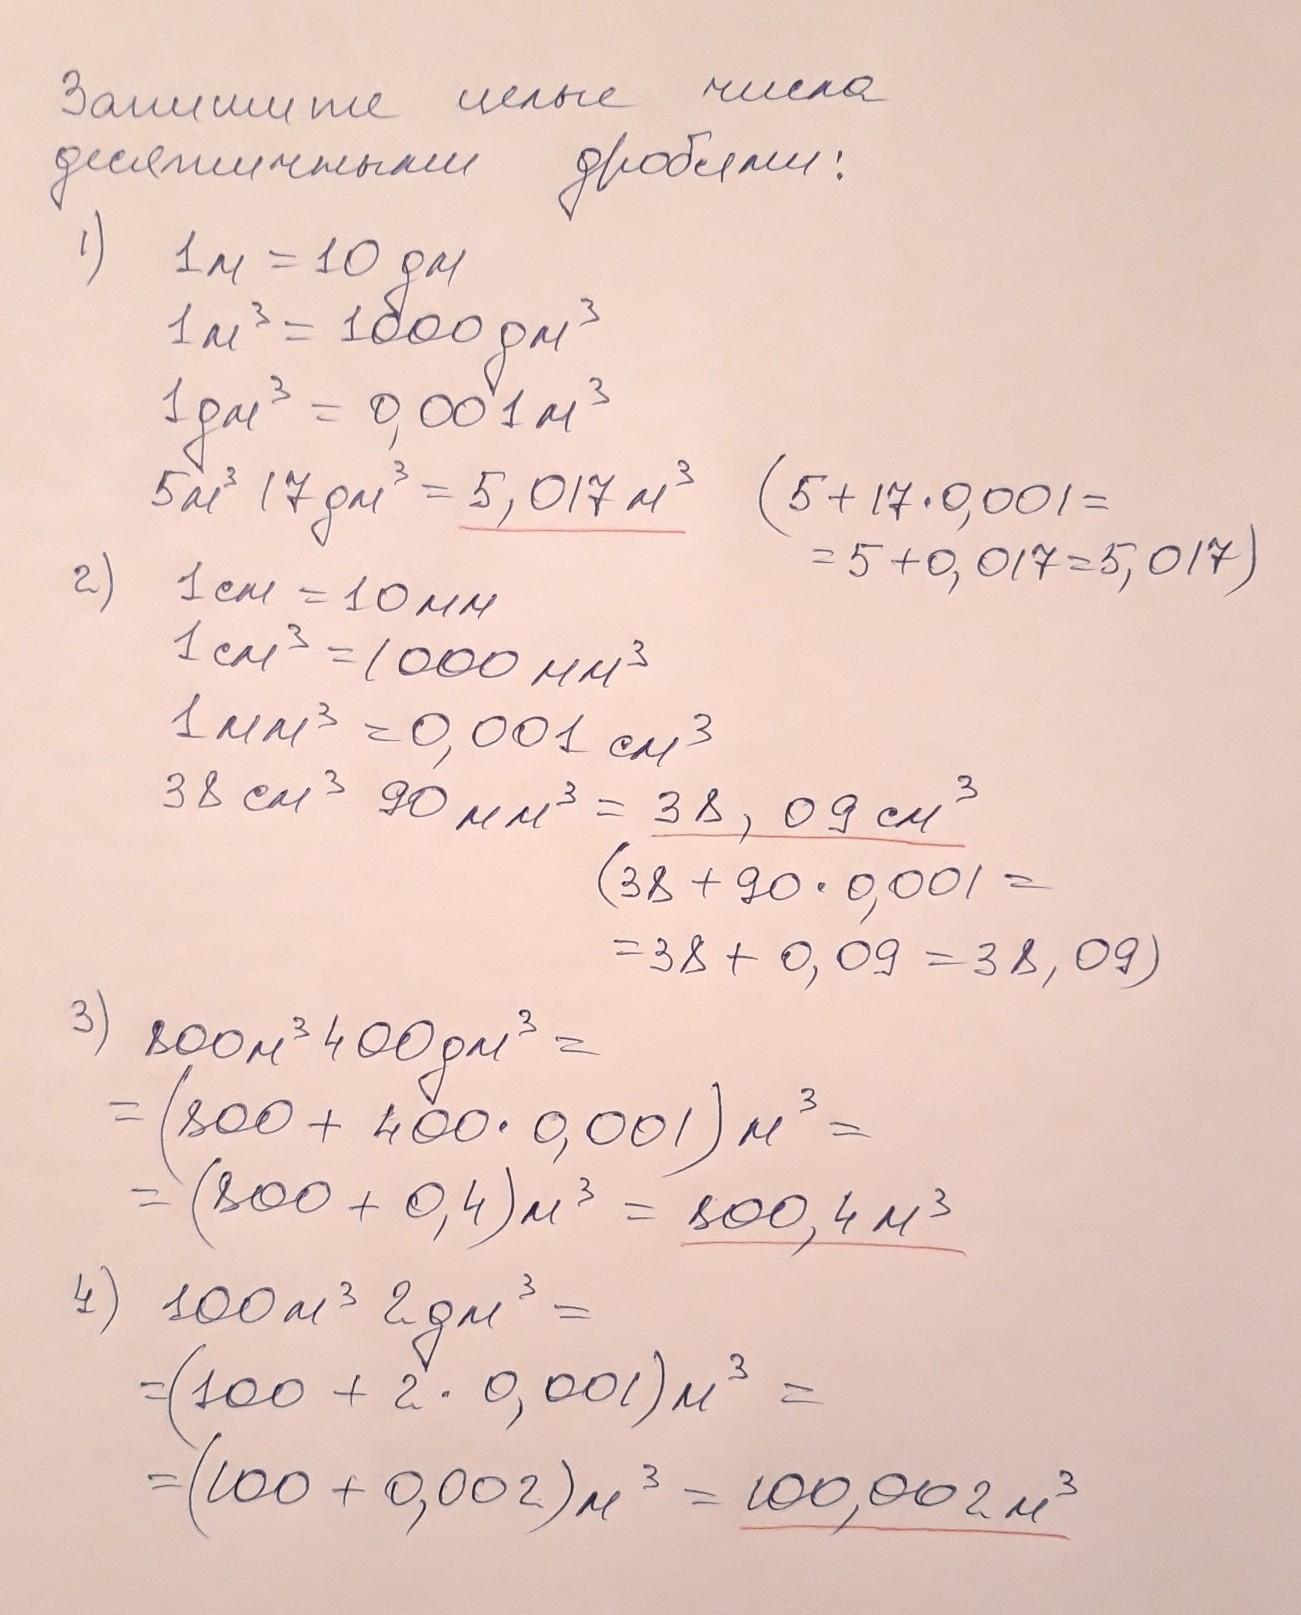 Запишите целые числа
десятичными дробями:
1) 1м = 10 дм
1м³ = 1000 дм³
1дм³ = 0,001м³
5м³ 17дм³ = 5,017м³ (5+17·0,001=
=5+0,017=5,017)
2) 1см = 10мм
1см³ = 1000 мм³
1мм³ = 0,001 см³
38 см³ 90 мм³ = 38,09 см³
(38 + 90 · 0,001 =
=38 + 0,09 = 38,09)
3) 800м³ 400дм³ =
= (800 + 400 · 0,001) м³ =
= (800 + 0,4) м³ = 800,4 м³
4) 100м³ 2дм³ =
=(100 + 2 · 0,001) м³ =
=(100 + 0,002) м³ = 100,002 м³